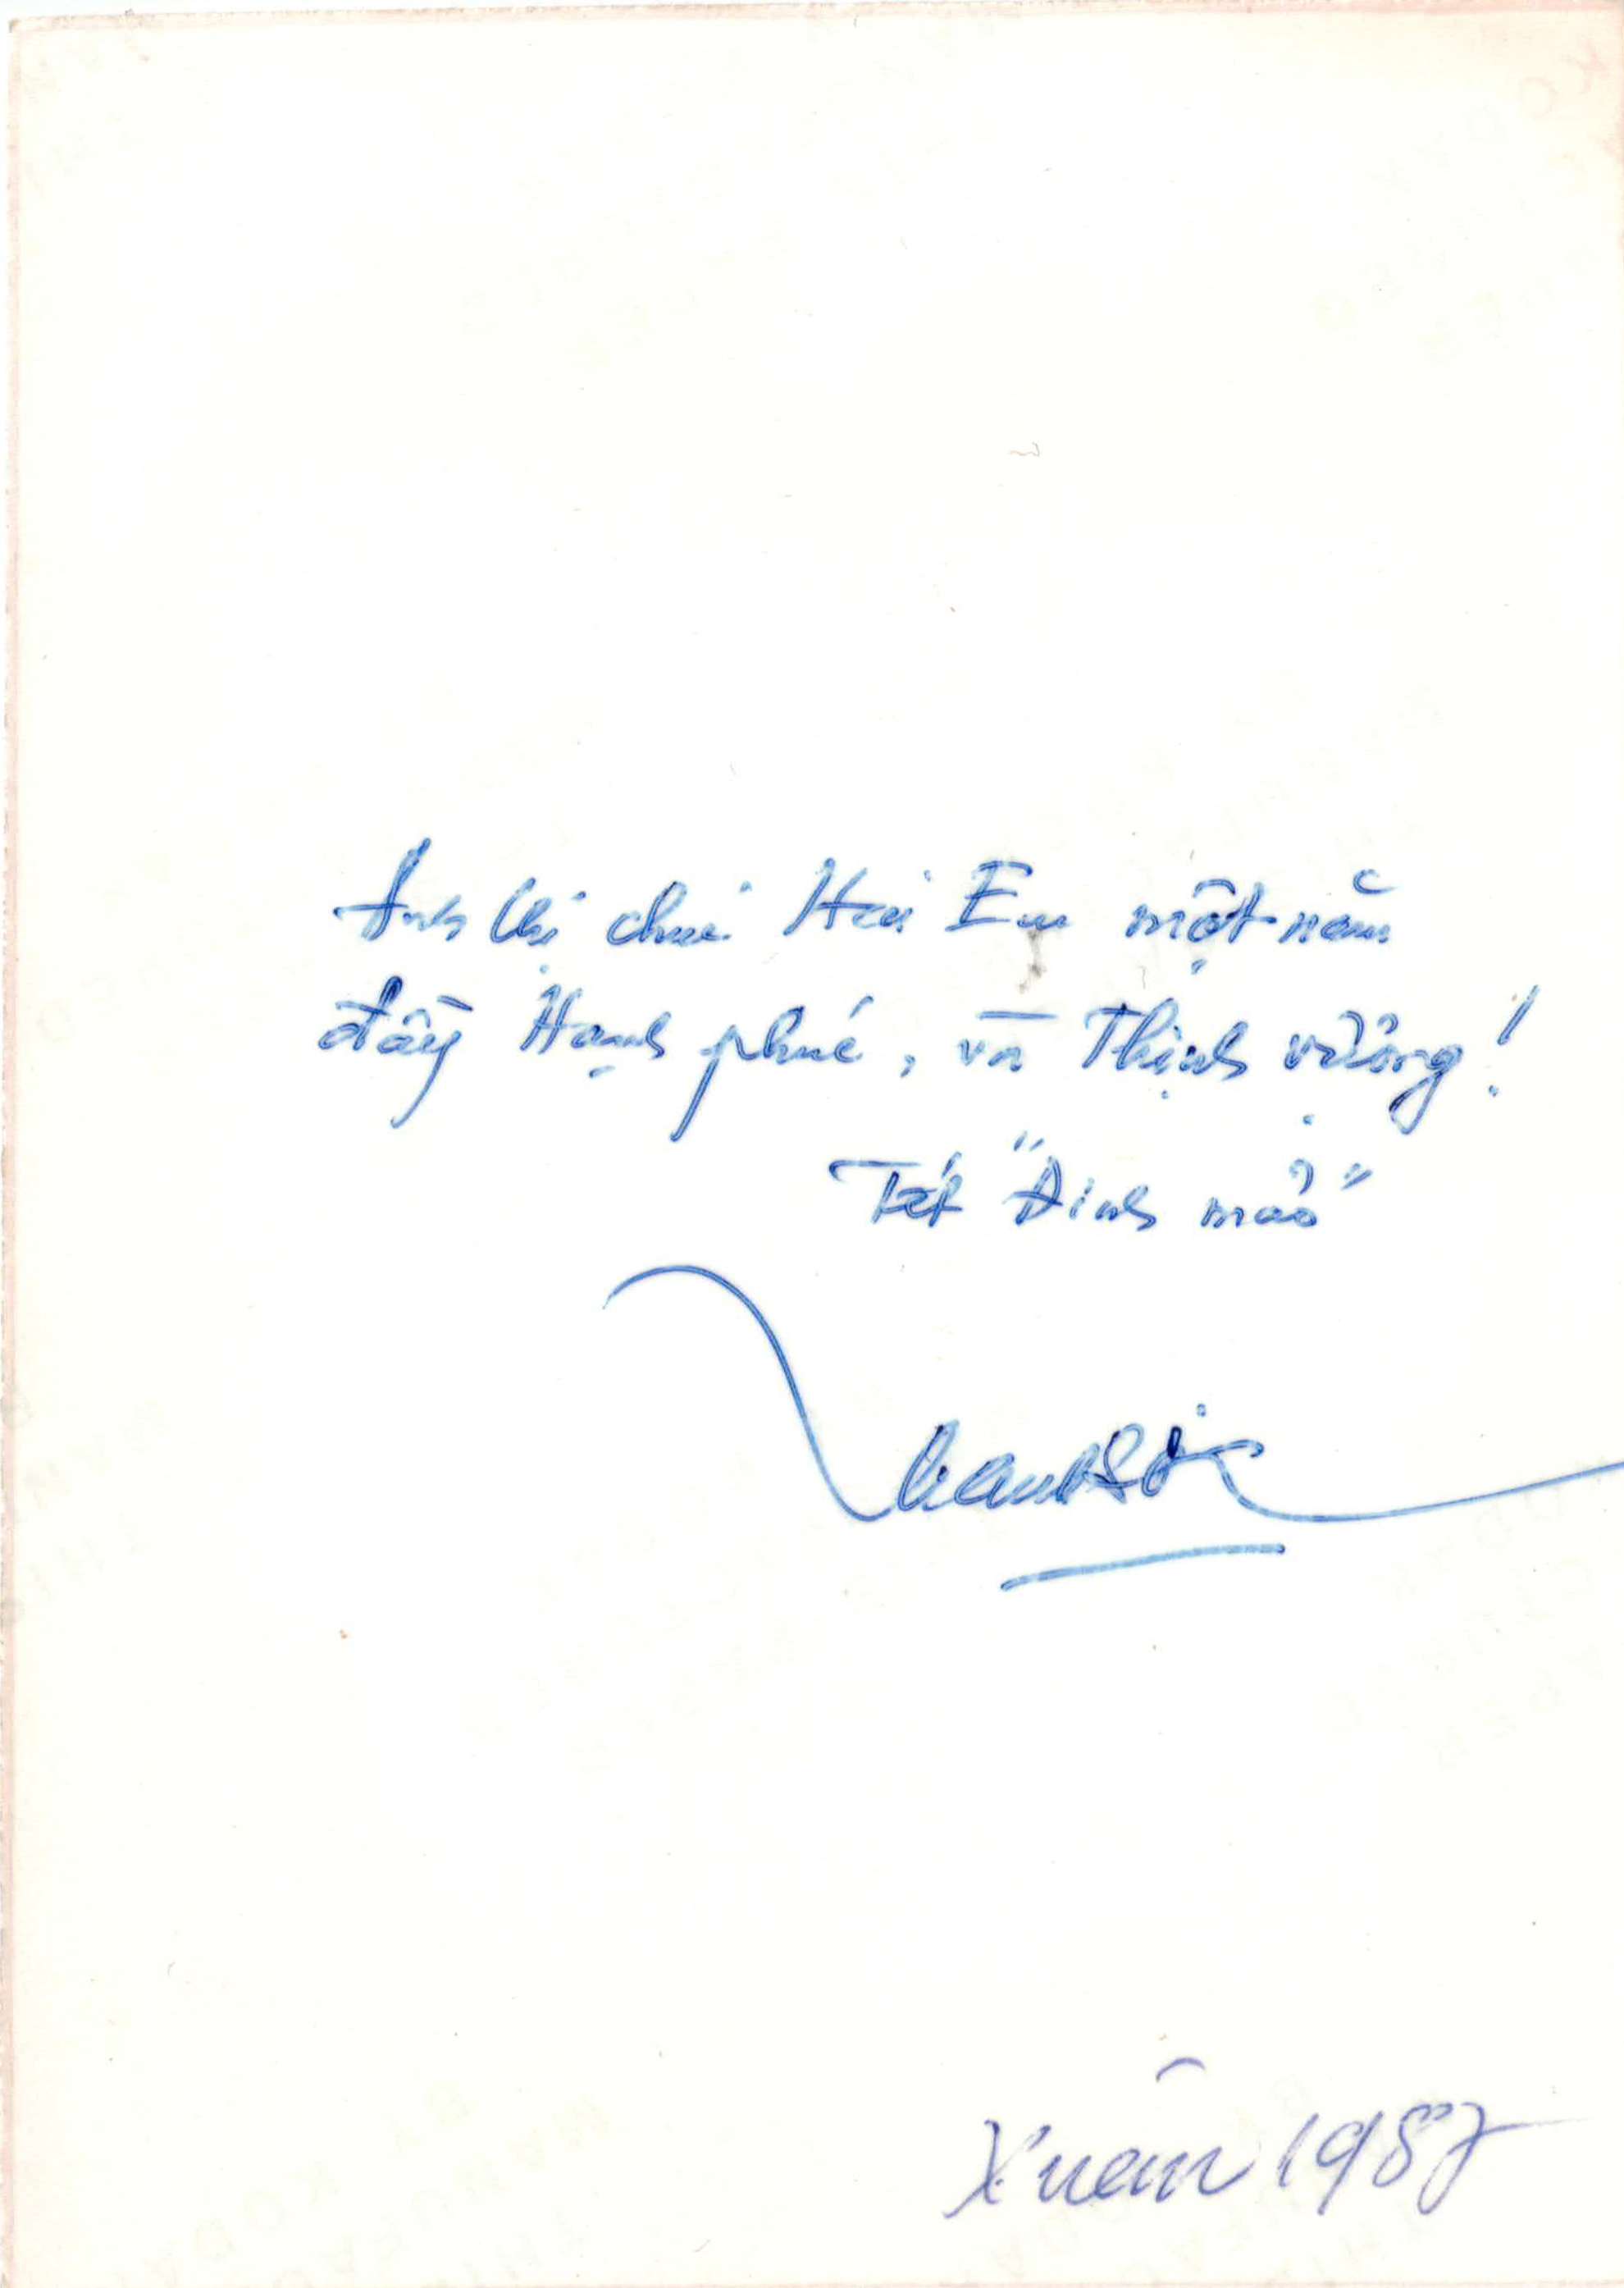 Anh Chị chúc Hai Em một năm
đầy Hạnh phúc, và Thịnh vượng!
Tết "Đinh mão"
Xuân 1987